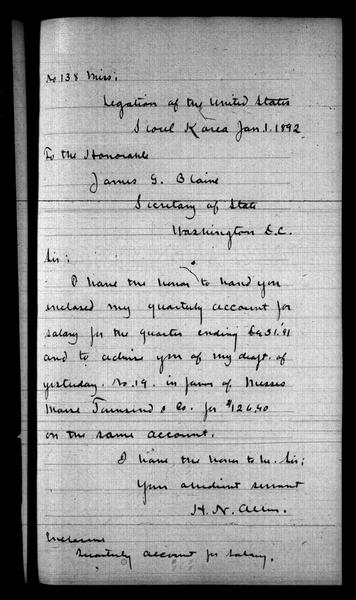 No 138 Misc:
Legation of the United States
Seoul Korea Jan. 1. 1892
To the Honorable
James G. Blaine
Secretary of State
Washington D.C.
Sir:
I have the honor to hand you
enclosed my quarterly account for
salary for the quarter ending Dec 31. '91
and to advise you of my draft of
yesterday. No. 19. in favor of Messrs
Morse Townsend & Co. for $126.40
on the same account.
I have the honor to be. Sir;
Your obedient servant
H. N. Allen.
Enclosure
Quarterly account for salary.